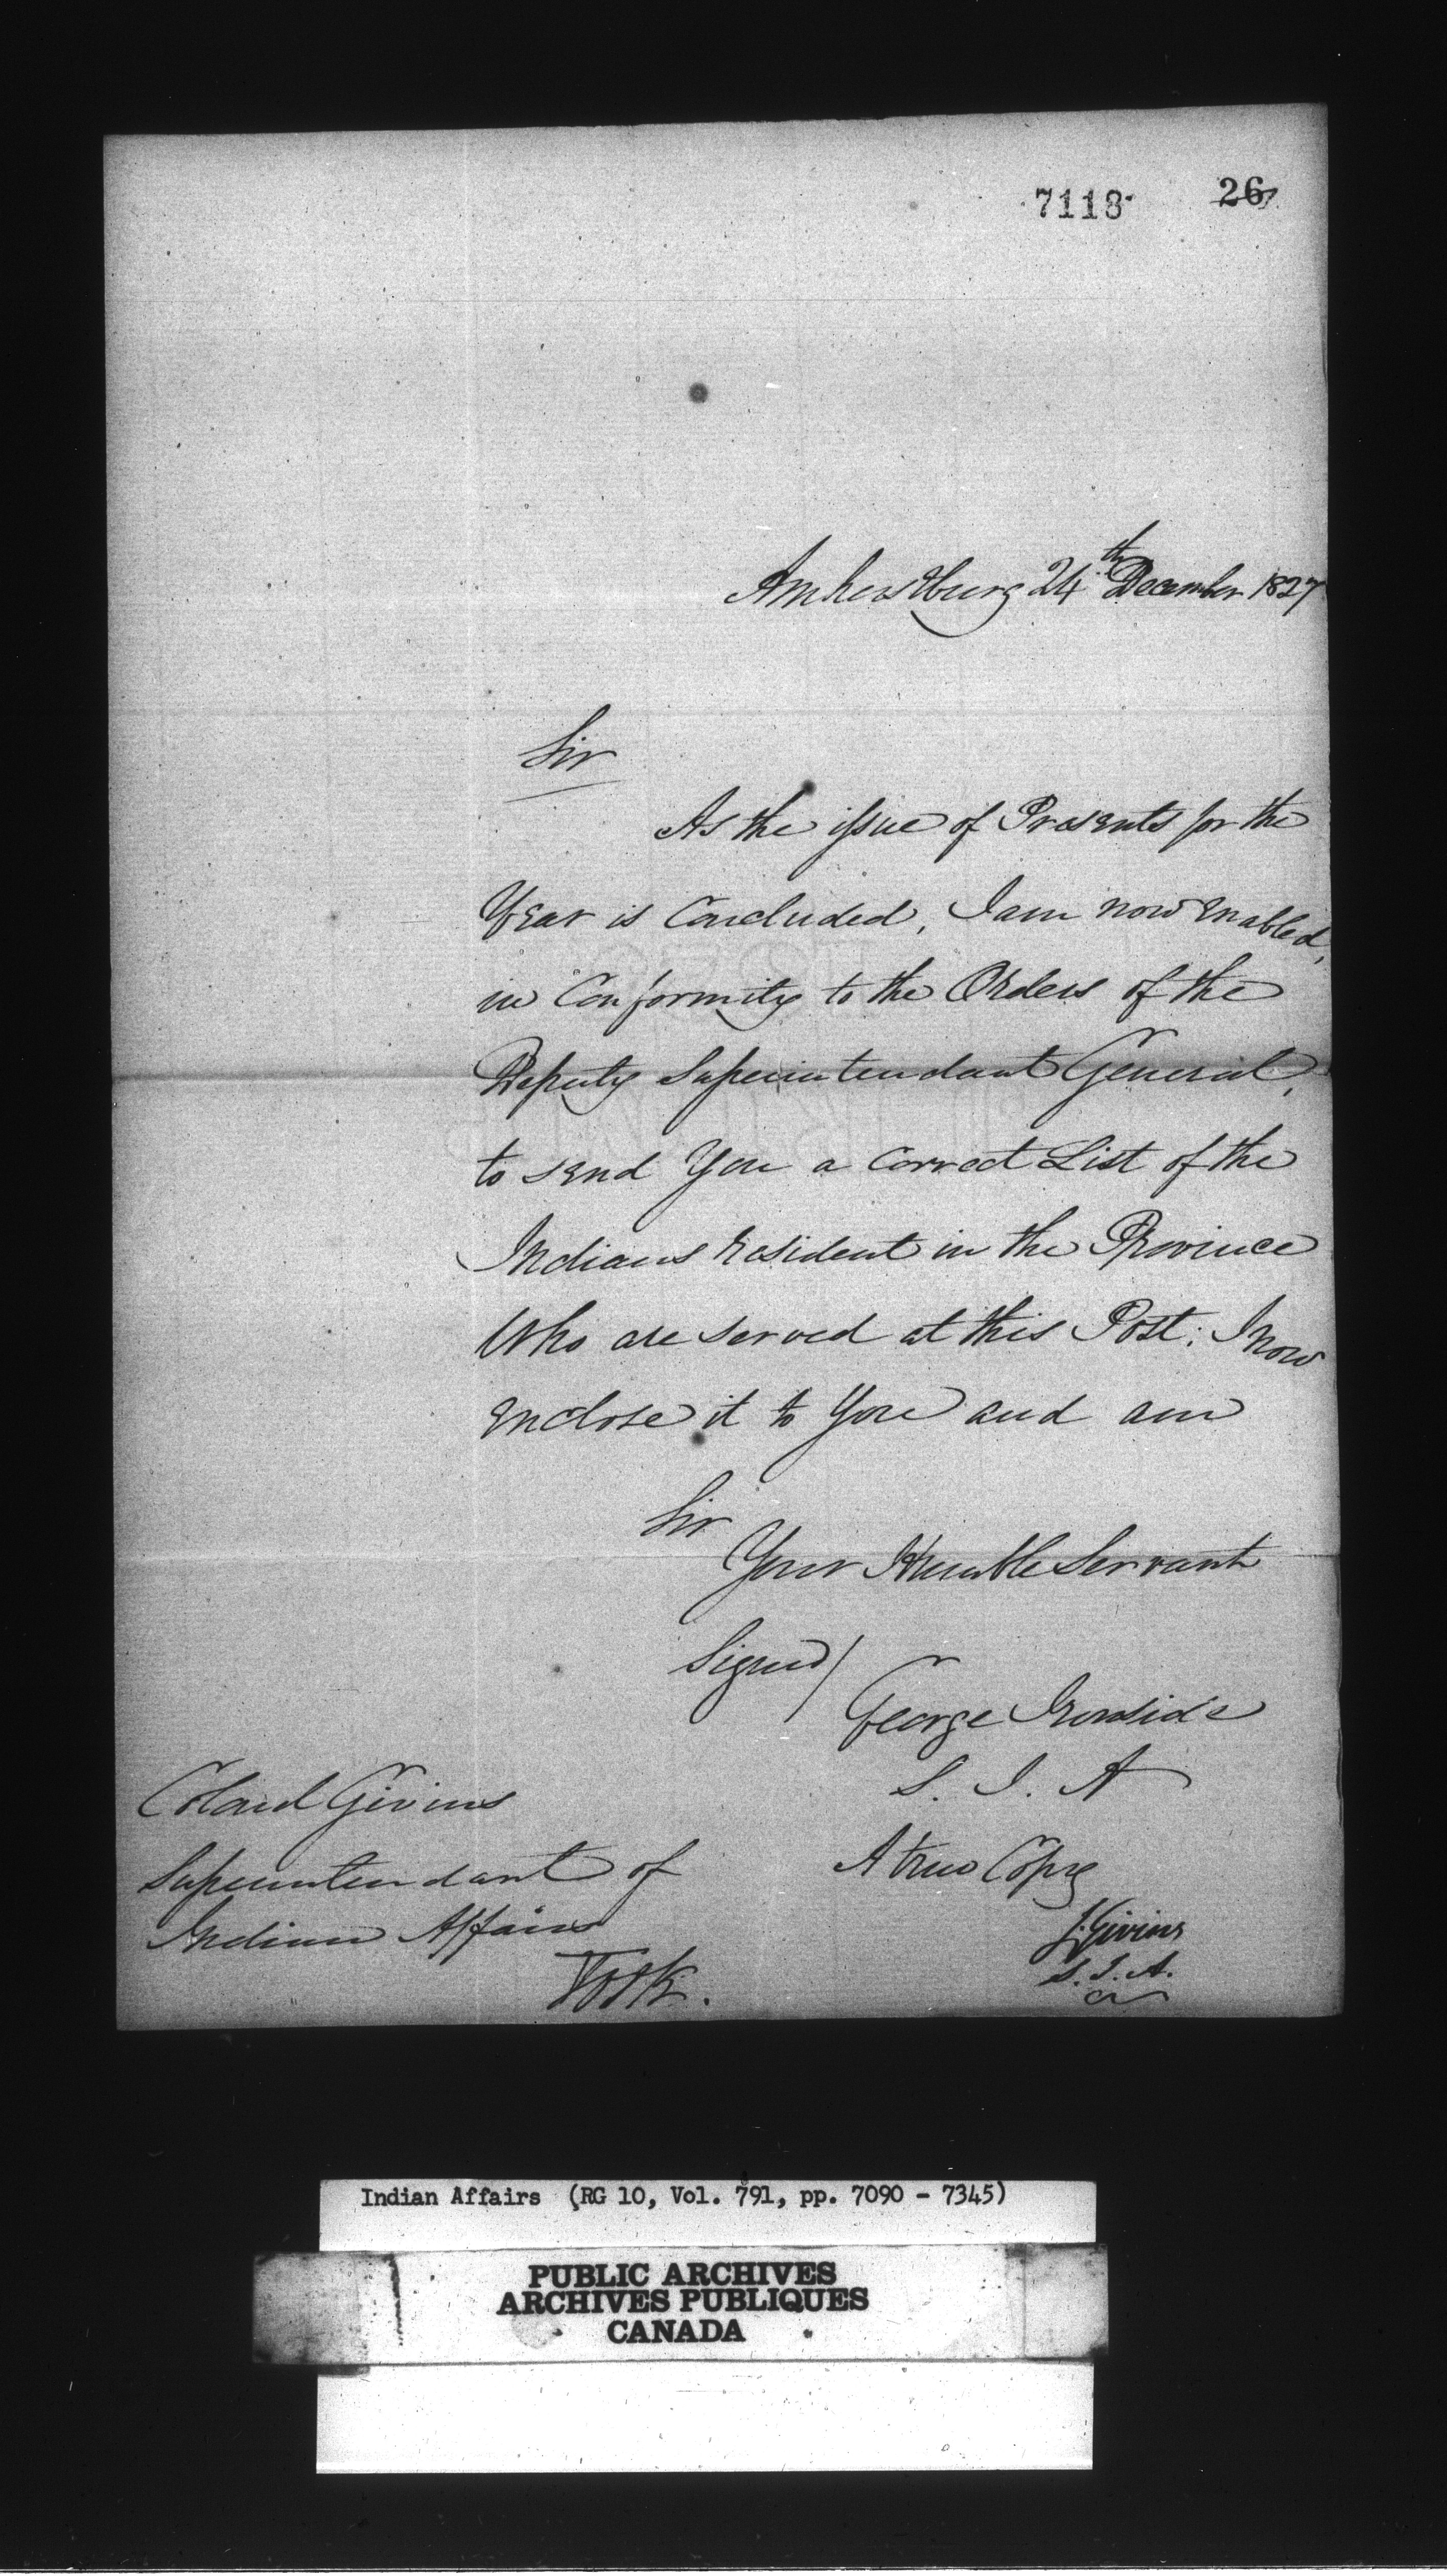 7118
26
Amherstburg 24th December 1827
Sir
As the issue of Presents for the
Year is Concluded, I am now enabled,
in Conformity to the Orders of the
Deputy Superintendant General,
to send You a Correct List of the
Indians resident in the Province
Who are served at this Post: I now
enclose it to You and am
Sir
Your Humble Servant
Signed/
George Ironside
S. I. A
Colonel Givins
Superintendant of
Indian Affairs
York.
A true Copy
J. Givins
S. I. A.
Indian Affairs (RG 10, Vol. 791, pp. 7090 - 7345)
PUBLIC ARCHIVES
ARCHIVES PUBLIQUES
CANADA